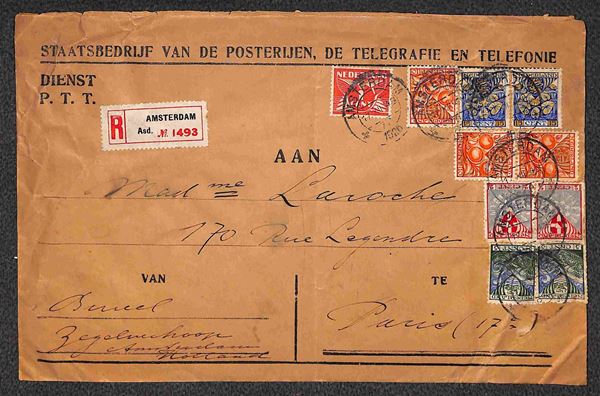 STAATSBEDRIJF VAN DE POSTERIJEN, DE TELEGRAFIE EN TELEFONIE
DIENST
P. T. T.
R
AMSTERDAM
Asd. No 1493
NEDERLAND
AMSTERDAM
1926
AAN
Mad me Laroche
170 Rue Legendre
VAN
TE
Bureel
Zegelverkoop
Amsterdam
Holland
Paris (17e